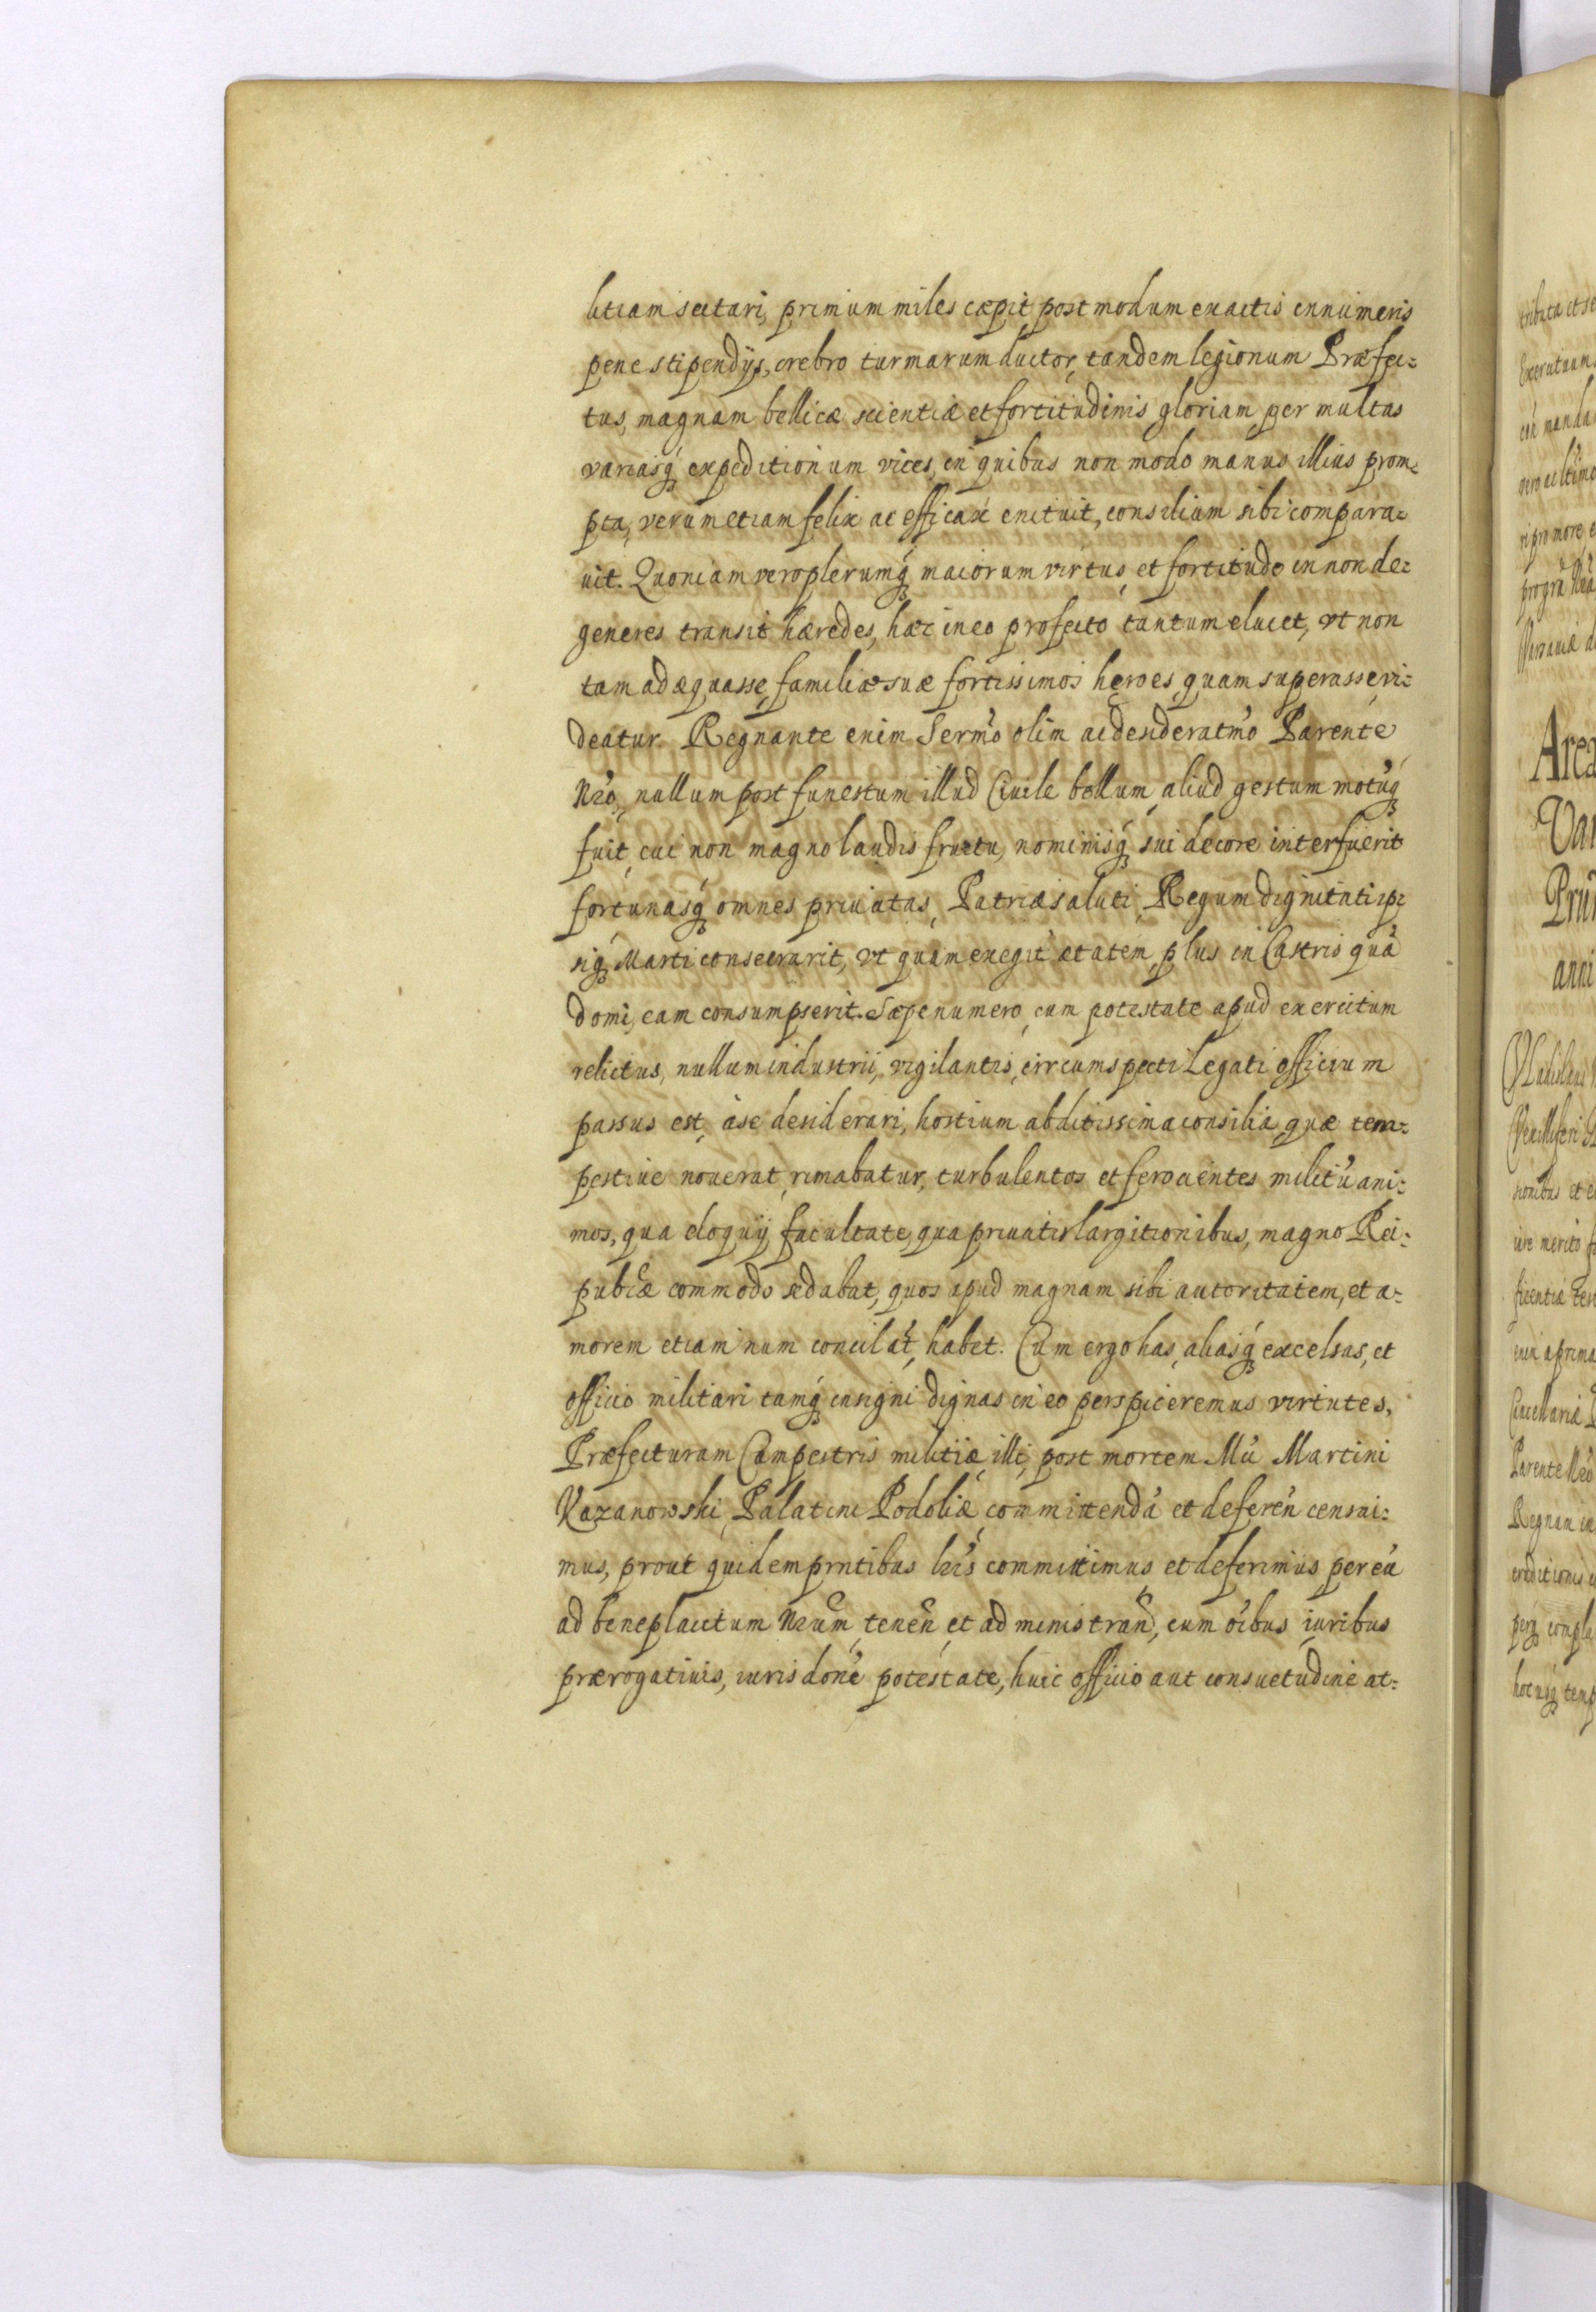 litiam sectari, primum miles cæpit post modum exactis innumeris
pene stipendijs, crebro turmarum ductor, tandem legionum Præfec-
tus, magnam bellicæ scientiæ et fortitudinis gloriam, per multas
variasq́ expeditionum vices, in quibus non modo manus illius prom-
pta, verum etiam felix ac efficax enituit, consilium sibi compara-
uit. Quoniam vero plerumq́ maiorum virtus et fortitudo in non de-
generes transit hæredes, hæc in eo profecto tantum elucet, vt non
tam adæquasse, familiæ suæ fortissimos heroes, quam superasse, vi-
deatur. Regnante enim Sermo olim ac desideratmo Parente
Nro, nullum post funestum illud Ciuile bellum, aliud gestum motuq́
fuit, cui non magno laudis fructu, nominisq́ sui decore interfuerit
fortunasq́ omnes priuatas, Patriæ saluti, Regum dignitati ip-
siq́ Marti consecrarit, vt quam exegit ætatem, plus in Castris quā
domi, eam consumpserit. Sæpenumero, cum potestate apud exercitum
relictus, nullum industrii, vigilantis, circumspecti Legati officium
passus est, à se desiderari, hostium abditissima consilia, quæ tem-
pestiue nouerat, rimabatur, turbulentos et ferocientes militū ani-
mos, qua eloquij facultate, qua priuatis largitionibus, magno Rei-
publcæ commodo sedabat, quos apud magnam sibi autoritatem, et a-
morem etiam num concilat, habet. Cum ergo has, aliasq́ excelsas, et
officio militari tamq́ insigni dignas in eo perspiceremus virtutes,
Præfecturam Campestris militiæ, illi, post mortem Mci Martini
Kazanowski, Palatini Podoliæ, committendā et deferen censui-
mus, prout quidem prntibus lris committimus et deferimus per eū
ad beneplacitum Nrum, tenen et administran, cum oibus iuribus
prærogatiuis, iurisdone potestate, huic officio aut consuetudine at-